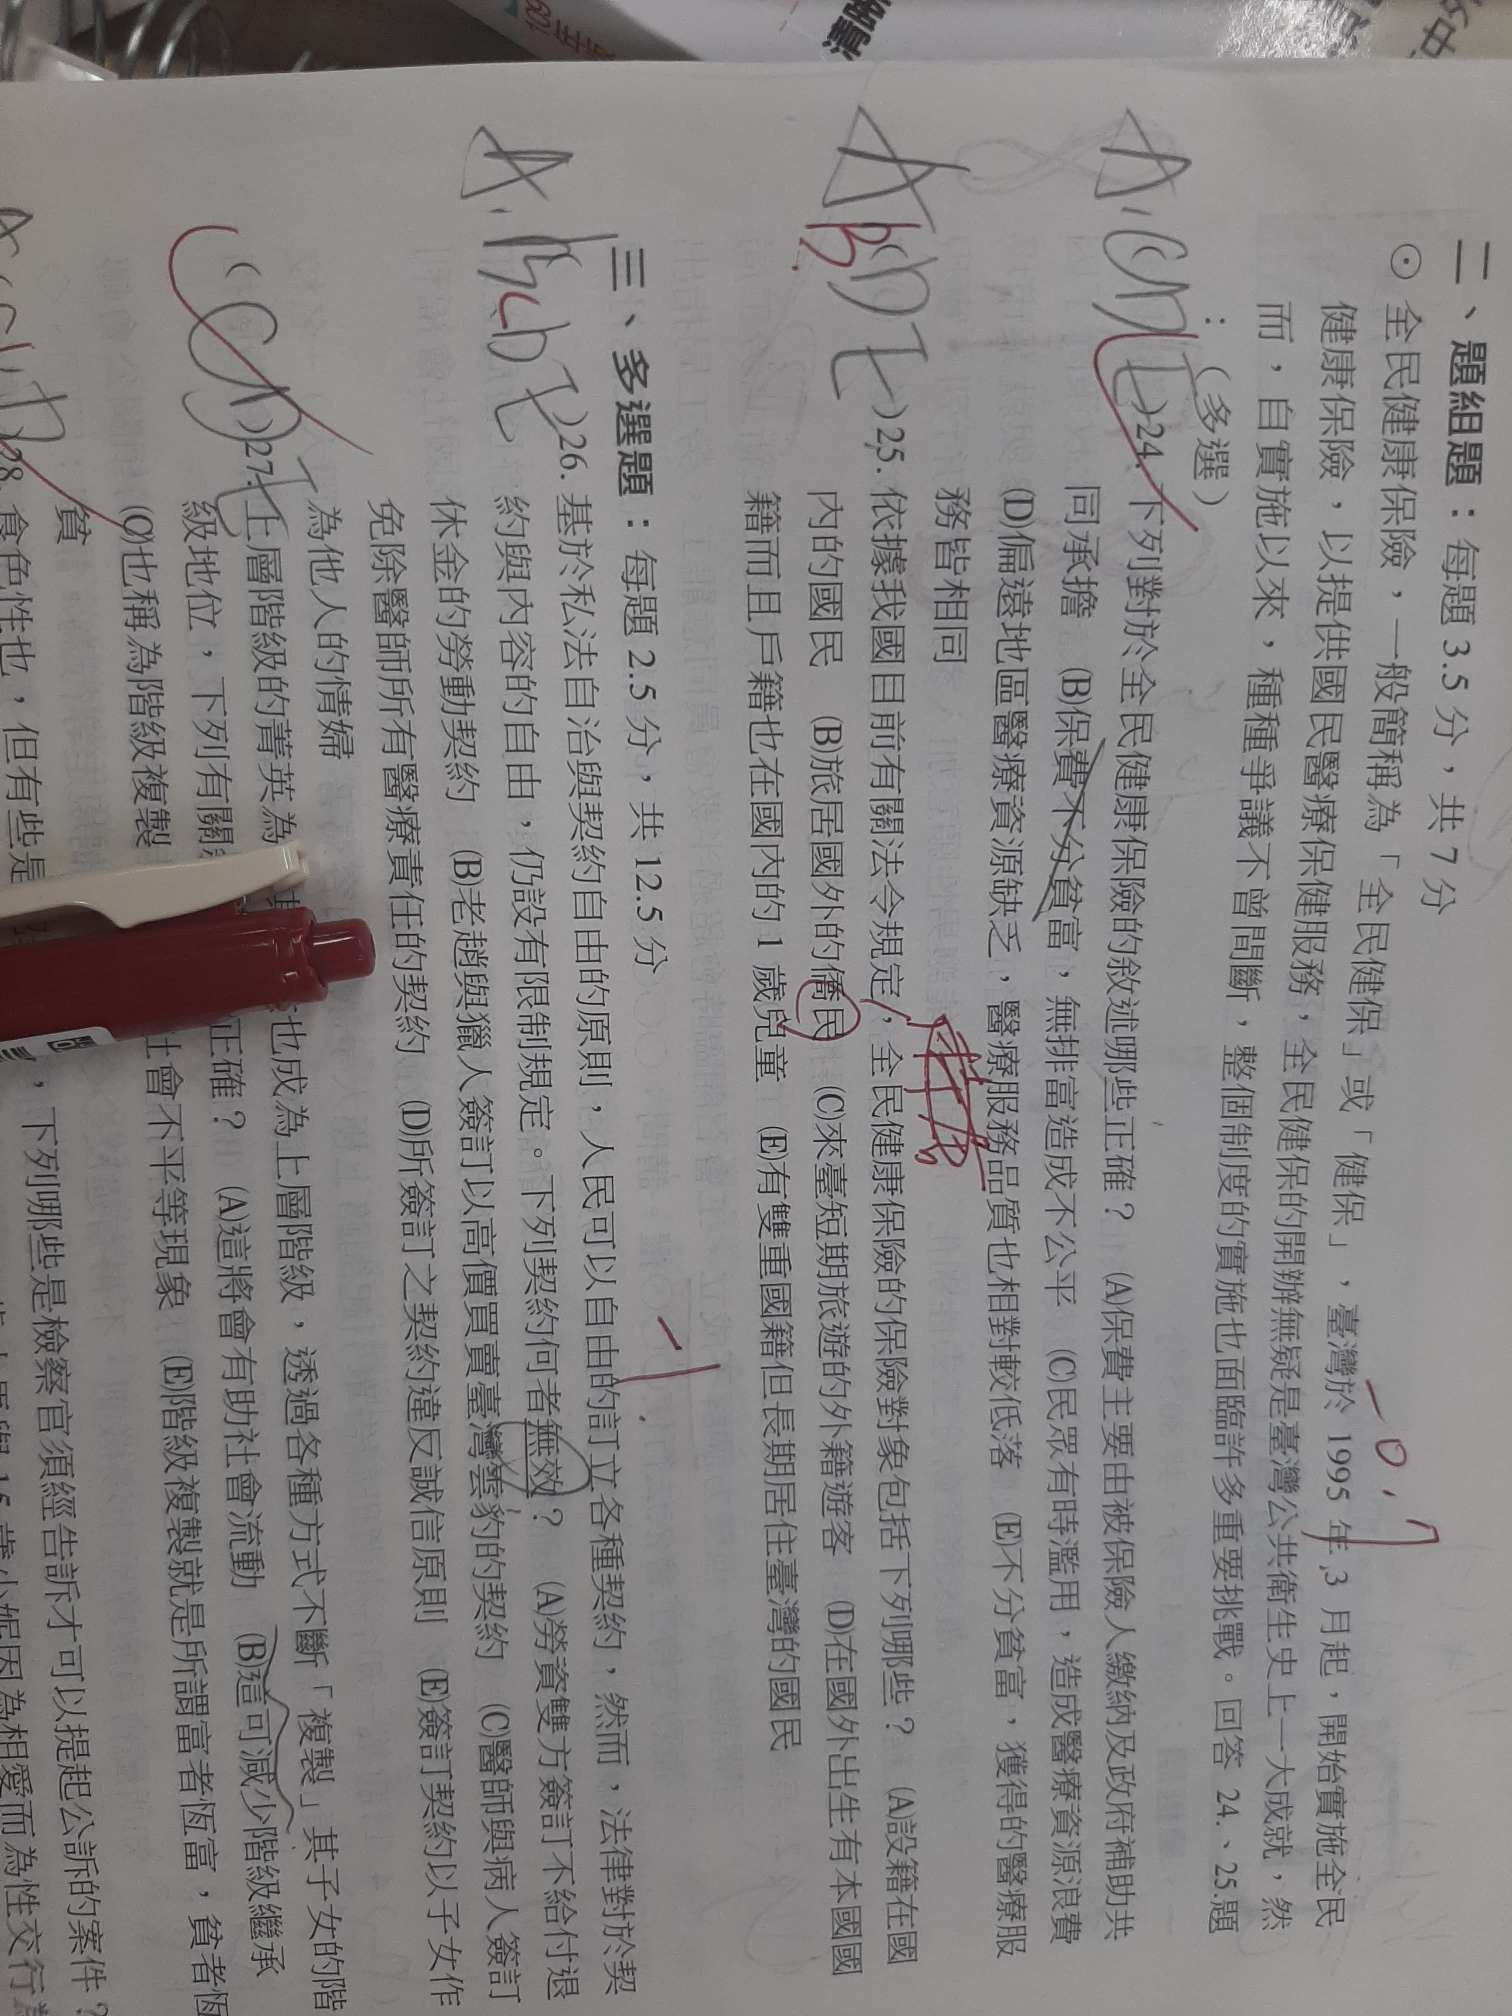 二、題組題：每題 3.5 分，共 7 分
⊙ 全民健康保險，一般簡稱為「全民健保」或「健保」，臺灣於 1995 年 3 月起，開始實施全民
健康保險，以提供國民醫療保健服務，全民健保的開辦無疑是臺灣公共衛生史上一大成就，然
而，自實施以來，種種爭議不曾間斷，整個制度的實施也面臨許多重要挑戰。回答 24.、25.題
：（多選）
)24. 下列對於全民健康保險的敘述哪些正確？ (A)保費主要由被保險人繳納及政府補助共
同承擔 (B)保費不分貧富，無排富造成不公平 (C)民眾有時濫用，造成醫療資源浪費
(D)偏遠地區醫療資源缺乏，醫療服務品質也相對較低落 (E)不分貧富，獲得的醫療服
務皆相同
)25. 依據我國目前有關法令規定，全民健康保險的保險對象包括下列哪些？ (A)設籍在國
內的國民 (B)旅居國外的僑民 (C)來臺短期旅遊的外籍遊客 (D)在國外出生有本國國
籍而且戶籍也在國內的 1 歲兒童 (E)有雙重國籍但長期居住臺灣的國民
三、多選題：每題 2.5 分，共 12.5 分
)26. 基於私法自治與契約自由的原則，人民可以自由的訂立各種契約，然而，法律對於契
約與內容的自由，仍設有限制規定。下列契約何者無效？ (A)勞資雙方簽訂不給付退
休金的勞動契約 (B)老趙與獵人簽訂以高價買賣臺灣雲豹的契約 (C)醫師與病人簽訂
免除醫師所有醫療責任的契約 (D)所簽訂之契約違反誠信原則 (E)簽訂契約以子女作
為他人的情婦
)27. 上層階級的菁英為 也成為上層階級，透過各種方式不斷「複製」其子女的階
級地位，下列有關 正確？ (A)這將會有助社會流動 (B)這可減少階級繼承
(C)也稱為階級複製 社會不平等現象 (E)階級複製就是所謂富者恆富，貧者恆
貧
)28. 食色性也，但有些是 ，下列哪些是檢察官須經告訴才可以提起公訴的案件？
歲小妮因為相愛而為性交行